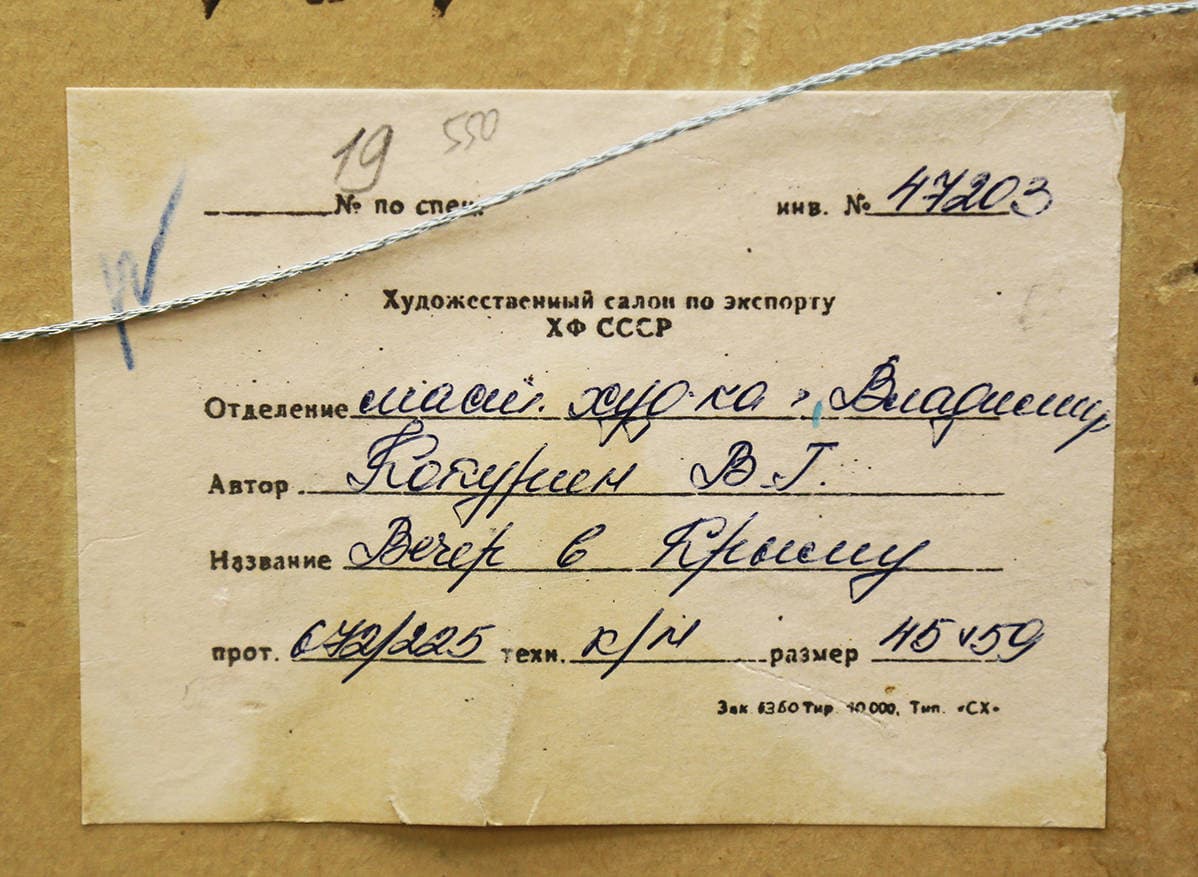 19 550
№ по спец. инв. № 47203
Художественный салон по экспорту
ХФ СССР
Отделение маст. худ-ка, Владимир
Автор Кокурин В.Г.
Название Вечер в Крыму
прот. 672/225 техн. к/м размер 45х59
Зак. 6350 Тир. 10 000, Тип. «СХ»